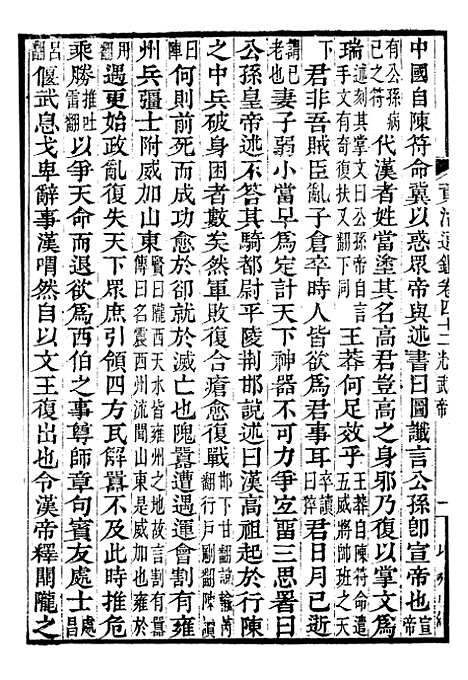 資治通鑑卷四十二 光武帝
中國自陳符命冀以惑衆帝與述書曰圖讖言公孫即宣帝也宣帝
有公孫病已之符代漢者姓當塗其名高君豈高之身邪乃復以掌文爲
瑞述刻其掌文曰公孫帝自言手文有奇復扶又翻下同王莽何足效乎王莽陳符命遣五威將帥班之天
下君非吾賊臣亂子倉卒時人皆欲爲君事耳卒讀曰猝君日月已逝
謂已老也妻子弱小當早爲定計天下神器不可力爭宜留三思署曰
公孫皇帝述不答其騎都尉平陵荆邯說述曰漢高祖起於行陳
之中兵破身困者數矣然軍敗復合瘡愈復戰邯下甘翻說輸芮翻行戶剛翻陳讀
曰陣何則前死而成功愈於却就於滅亡也隗囂遭遇運會割有雍
州兵彊士附威加山東賢曰隴西天水皆雍州地故言割有囂傳曰名震西州流聞山東是也雍於
用翻遇更始政亂復失天下衆庶引領四方瓦解囂不及此時推危
乘勝推吐雷翻以爭天命而退欲爲西伯之事尊師章句賓友處士處昌
吕翻偃武息戈卑辭事漢喟然自以文王復出也令漢帝釋關隴之